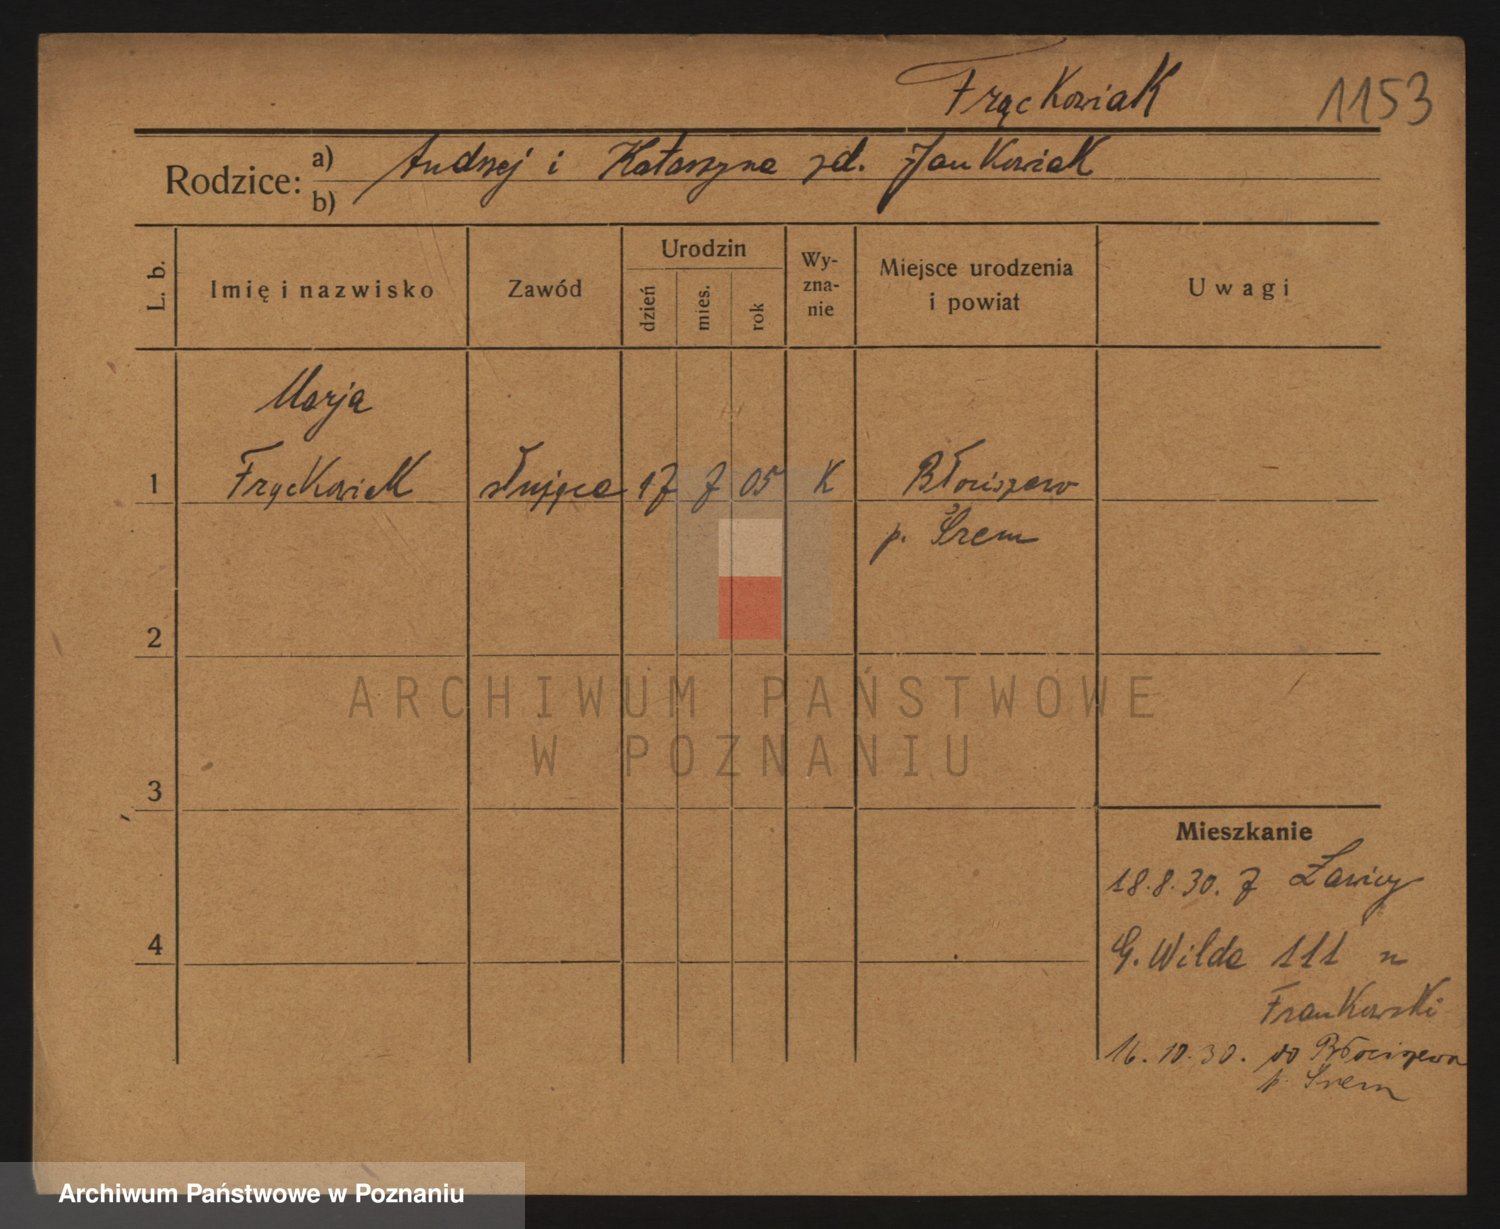 Frąckowiak 1153
Rodzice: a) Andrzej i Katarzyna zd. Jankowiak
b)
L. b. Imię i nazwisko Zawód Urodzin dzień mies. rok Wy-zna-nie Miejsce urodzenia i powiat Uwagi
Marja
1 Frąckowiak służąca 17 7 05 K Błociszewo
p. Śrem
2
ARCHIWUM PAŃSTWOWE
W POZNANIU
3
Mieszkanie
18.8.30. z Ławicy
4 G. Wilda 111 u
Frankowski
16.10.30. do Błociszewa
p. Śrem
Archiwum Państwowe w Poznaniu